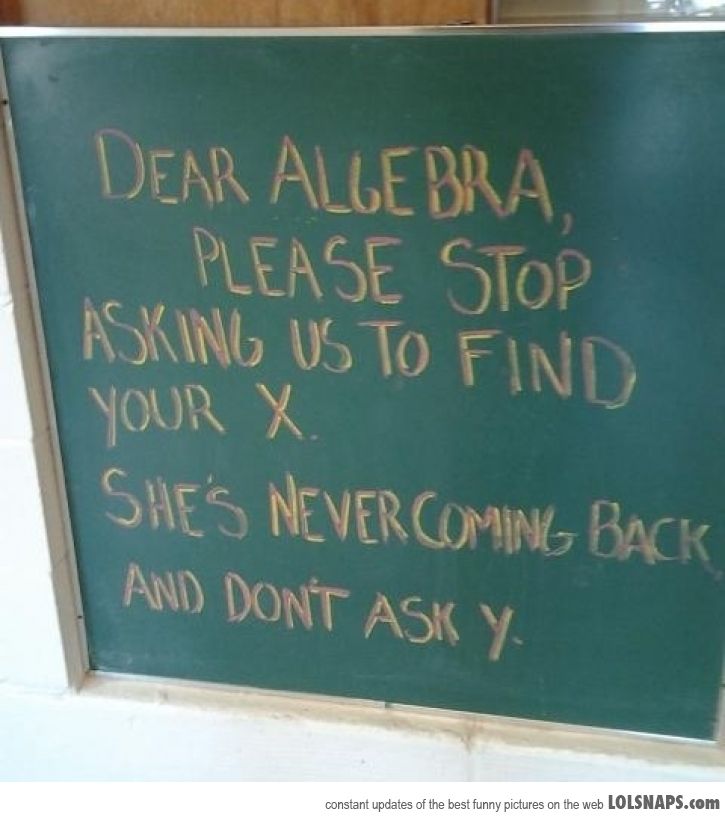 DEAR ALGEBRA,
PLEASE STOP
ASKING US TO FIND
YOUR X.
SHE'S NEVER COMING BACK
AND DON'T ASK Y.
constant updates of the best funny pictures on the web LOLSNAPS.com